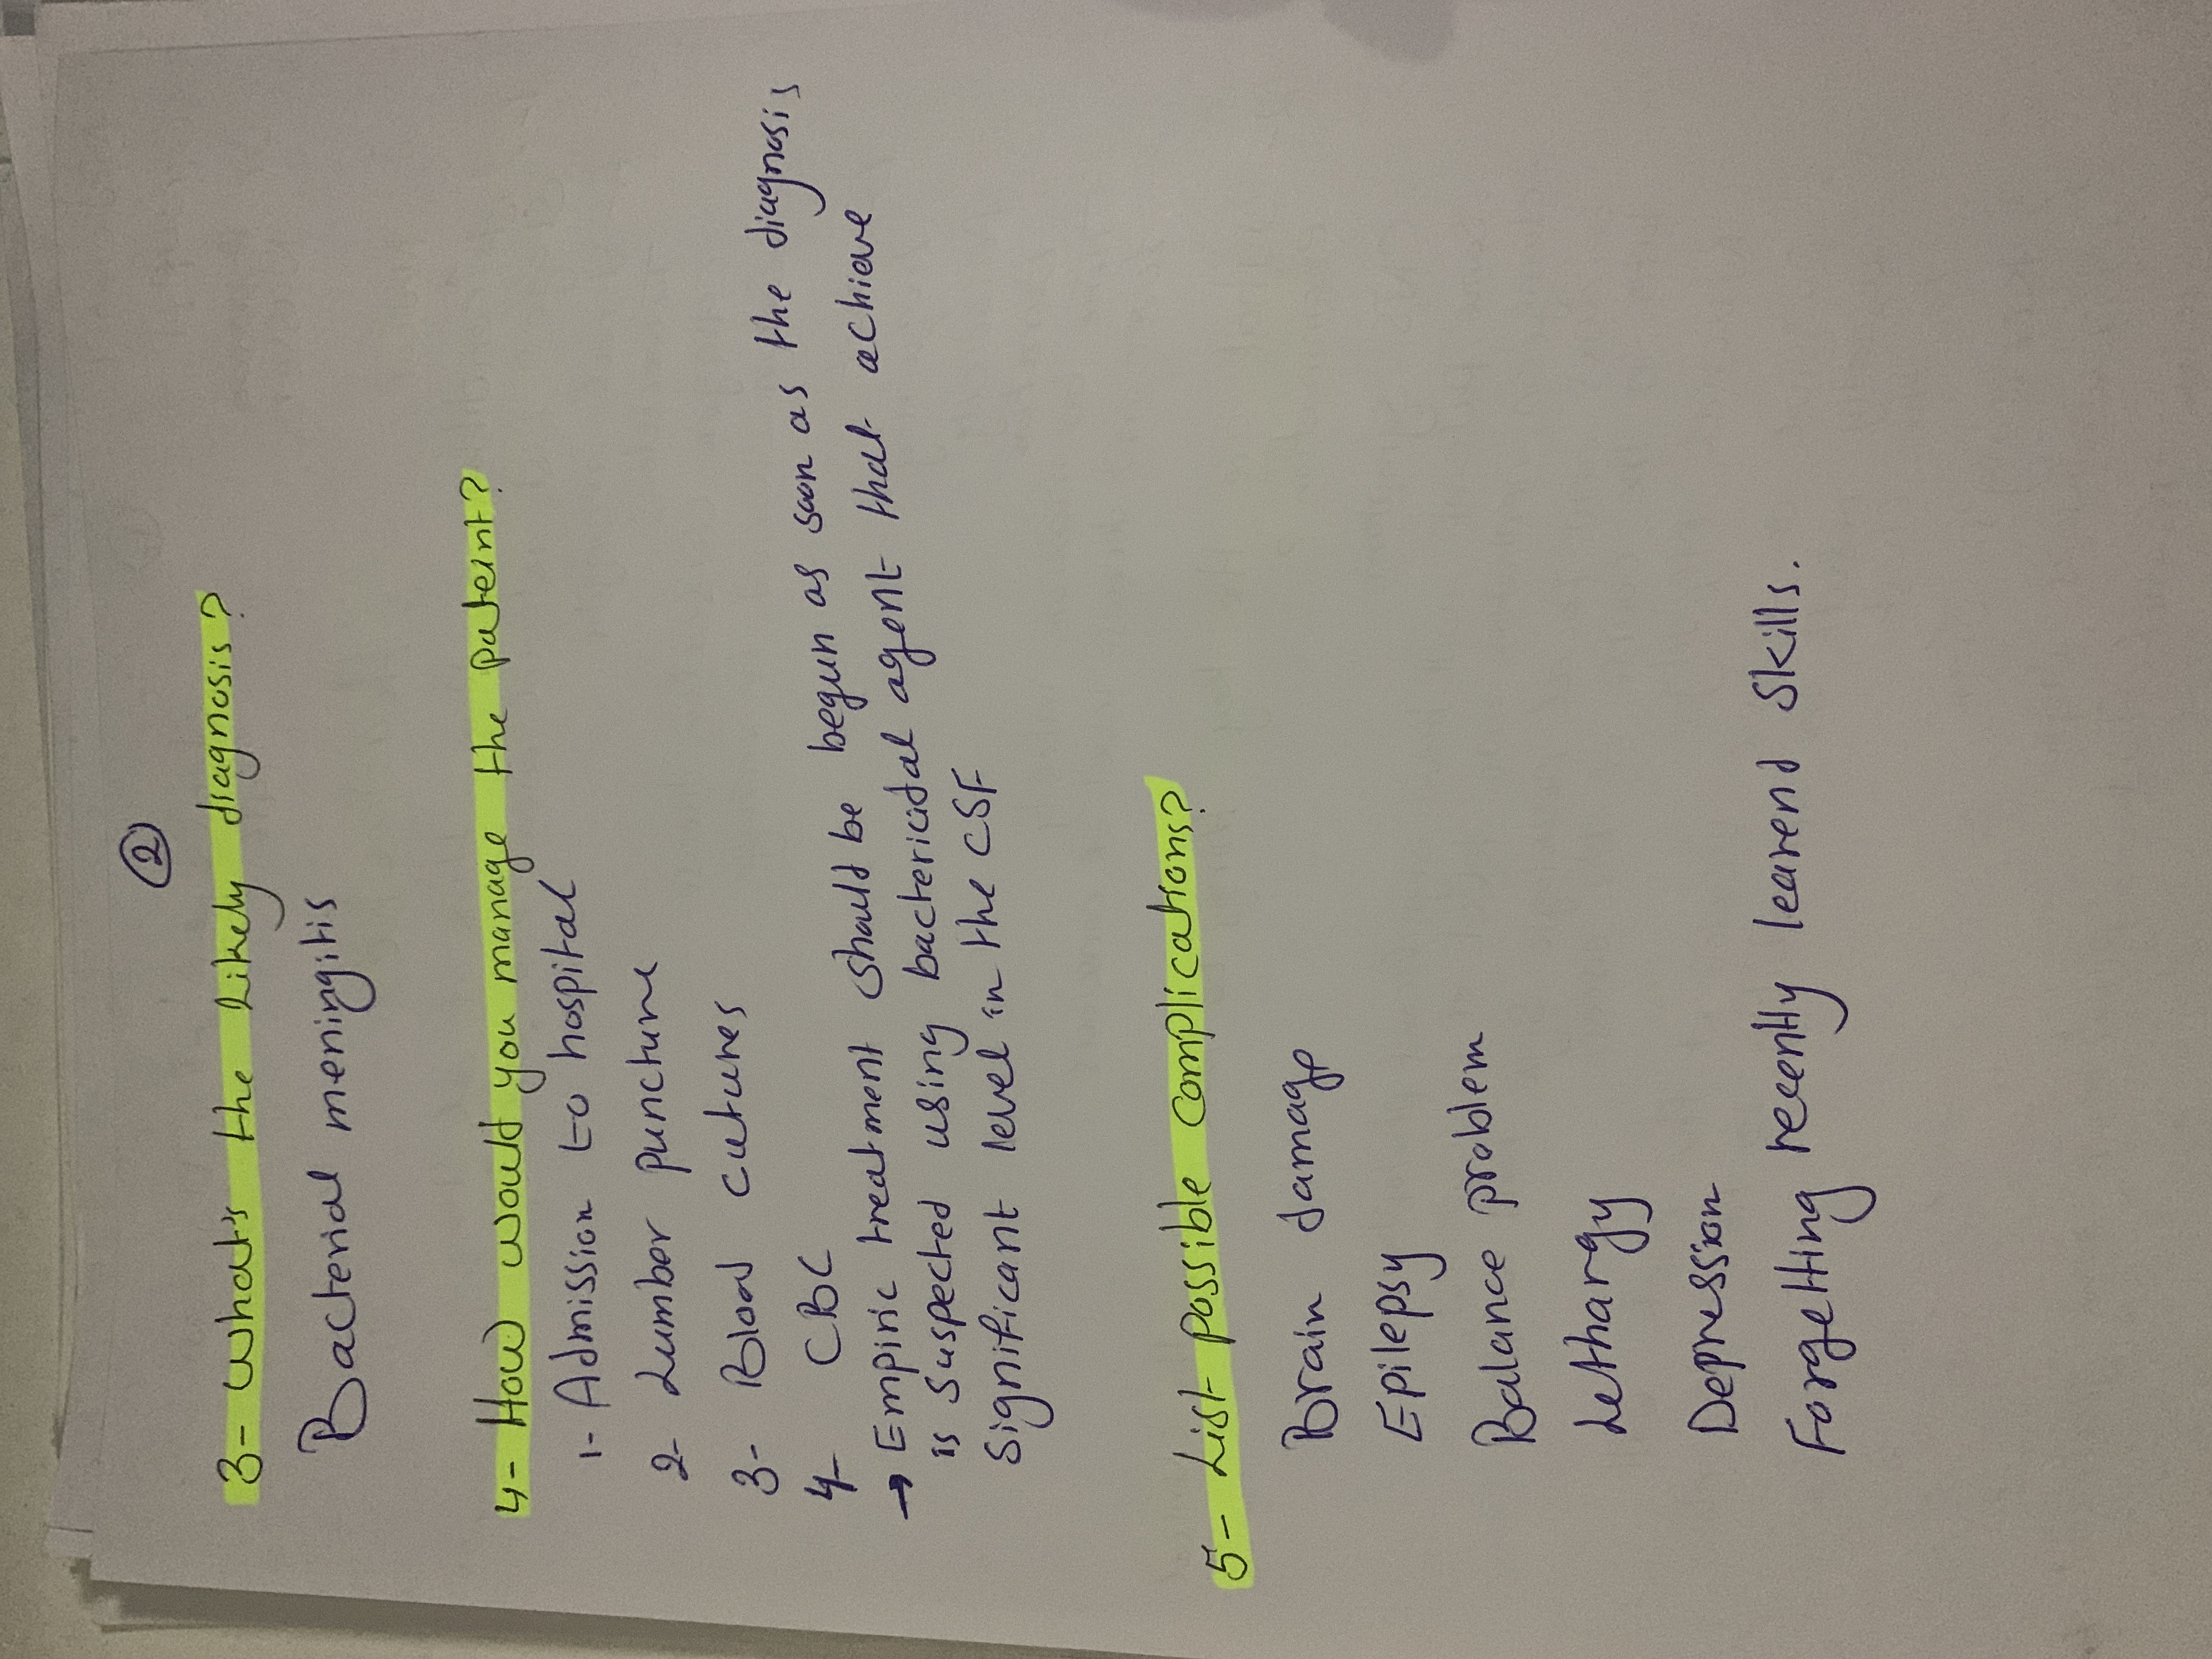 2
3- What's the Likely diagnosis?
Bacterial meningitis
4- How would you manage the pateint?
1- Admission to hospital
2- Lumber puncture
3- Blood cutures
4- CBC
→ Empiric treatment should be begun as soon as the diagnosis
is suspected using bactericidal agent that achieve
significant level in the CSF
5- List possible complications?
Brain damage
Epilepsy
Balance problem
Lethargy
Depression
Forgetting recently learend skills.